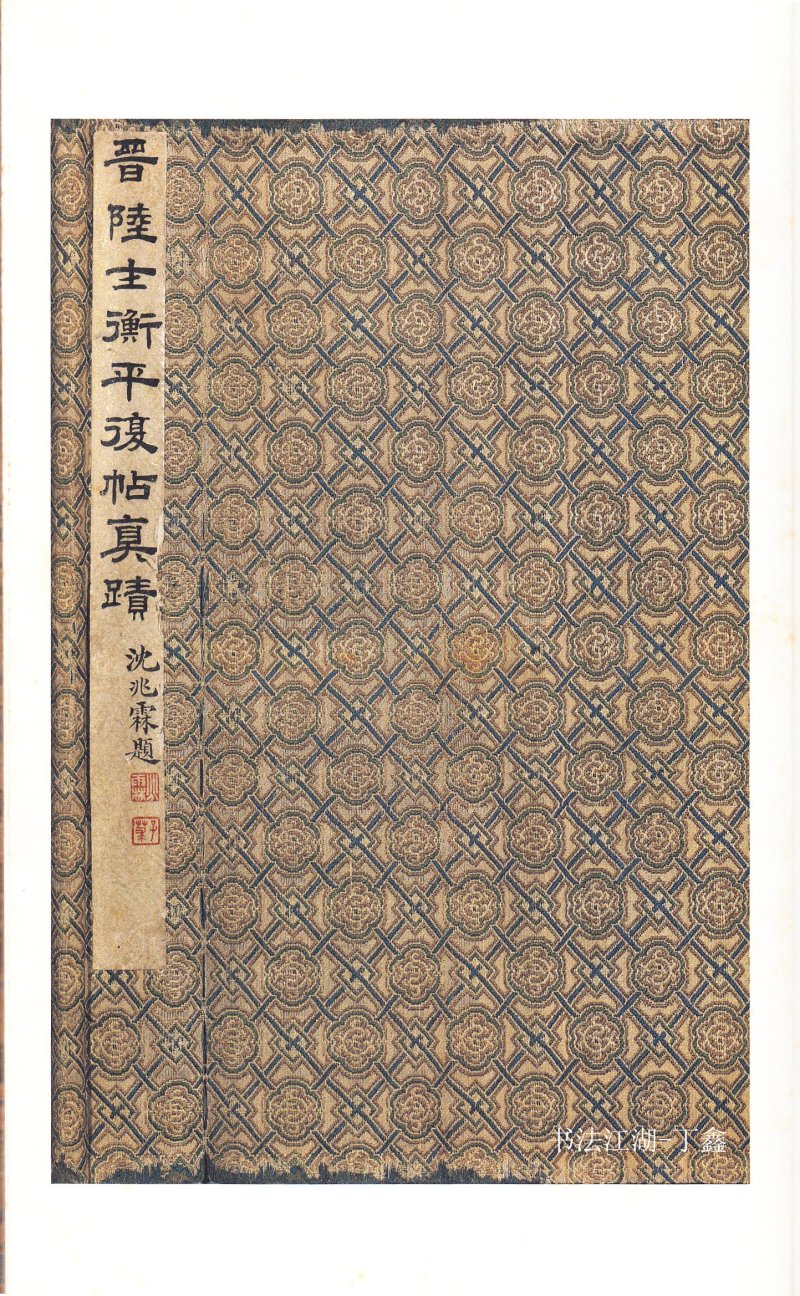 晋陸士衡平復帖真蹟
沈兆霖題
书法江湖-丁鑫